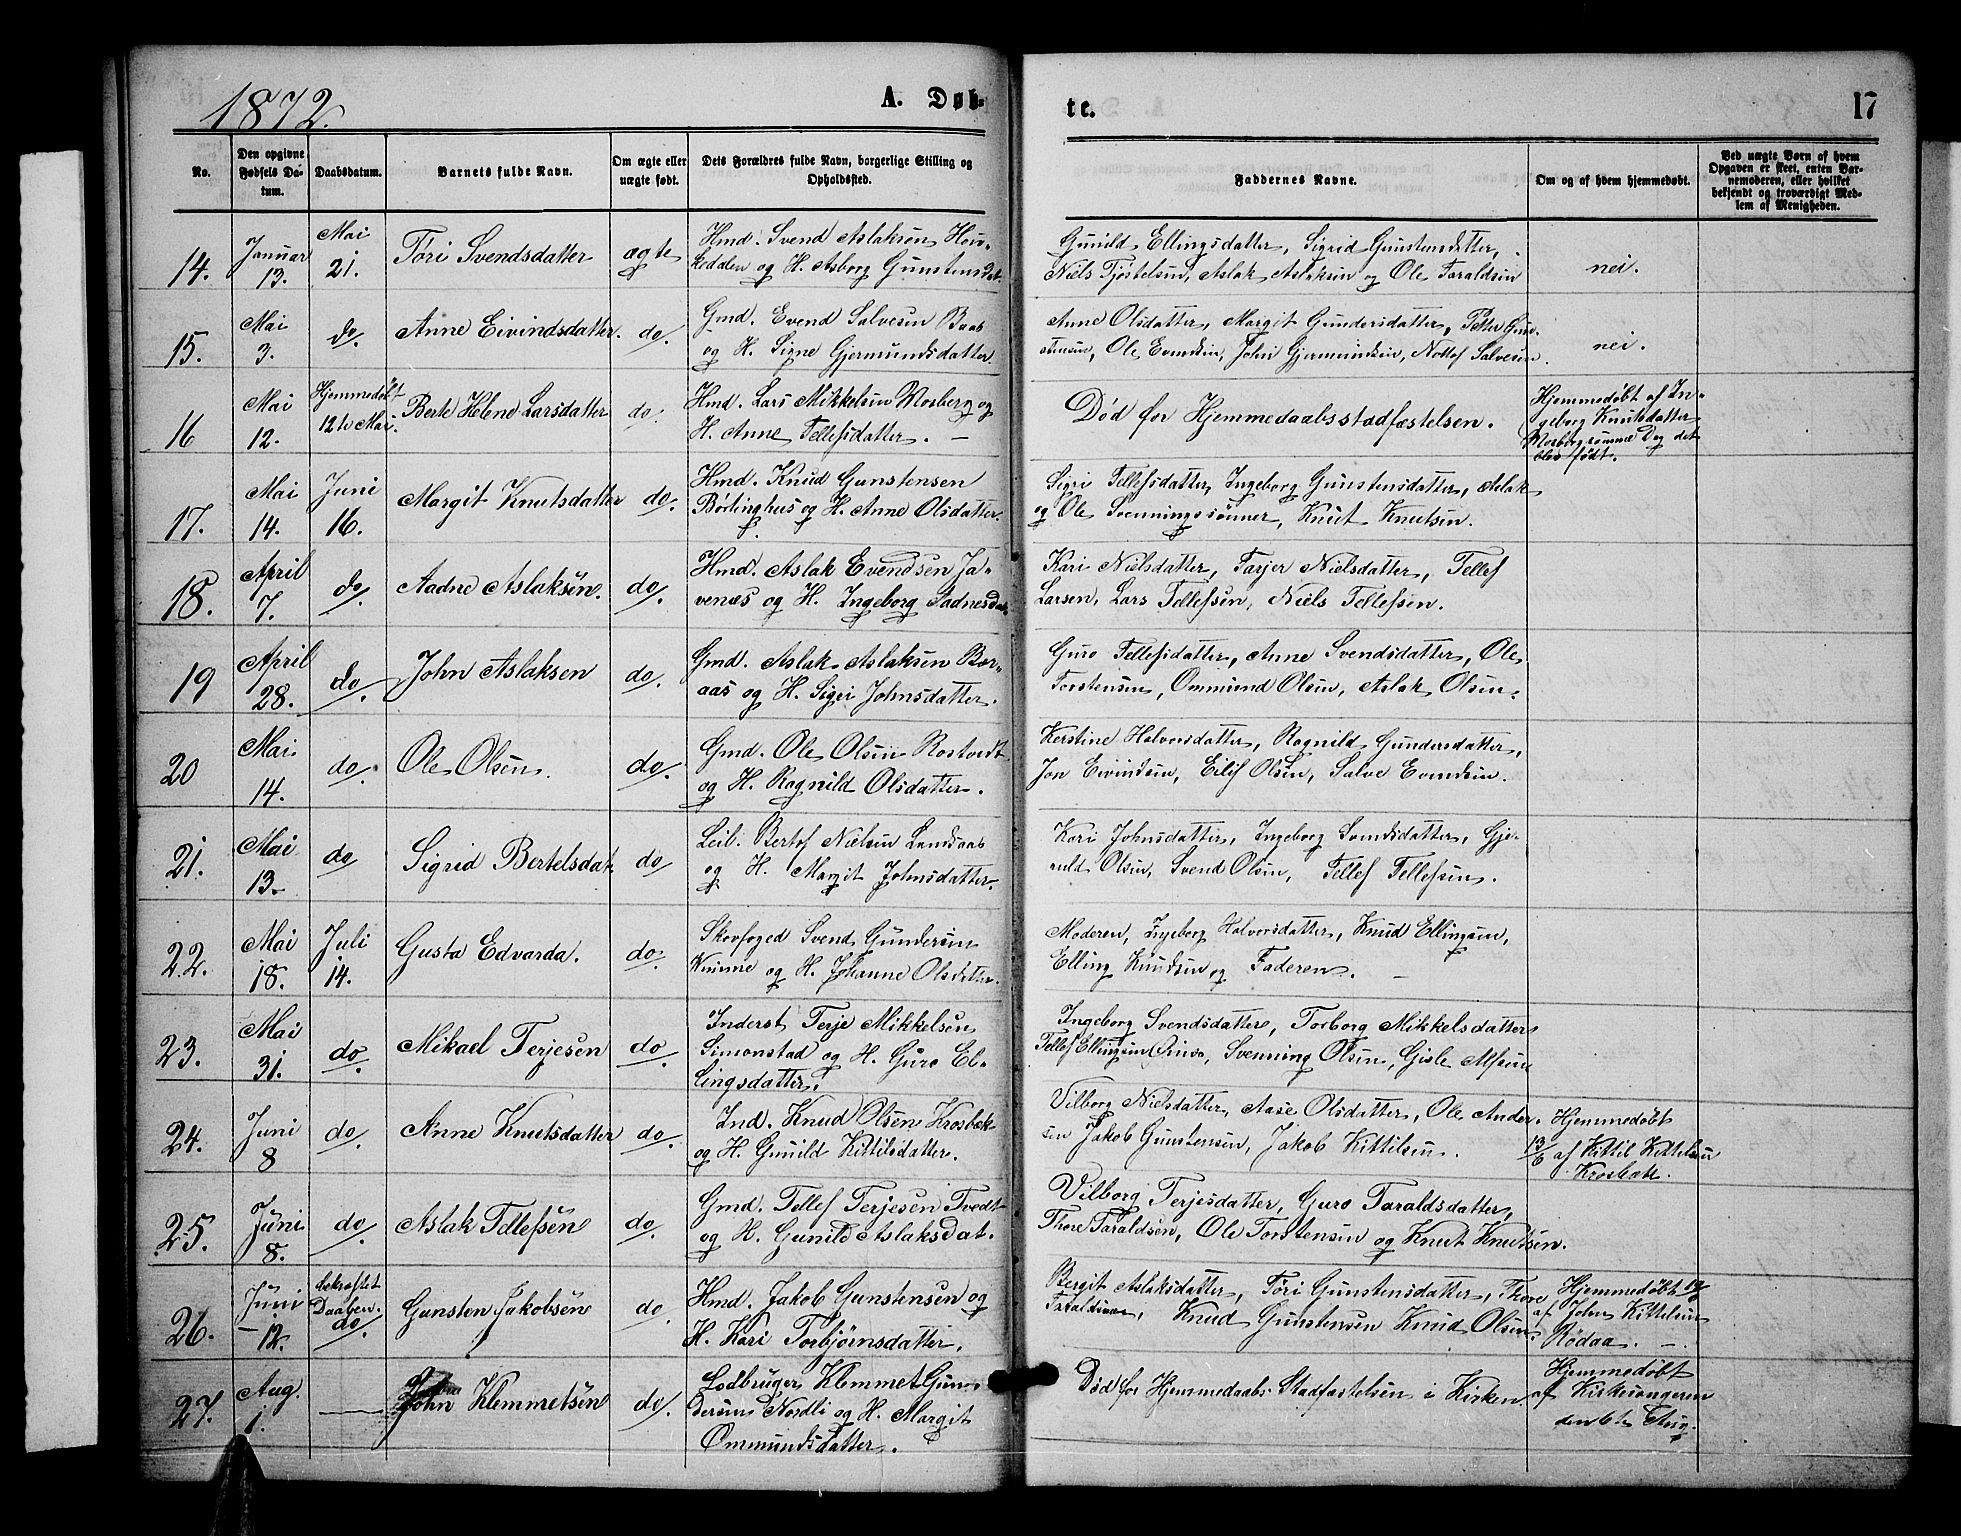 1872.
A. Døb-
te.
17
No.
Den opgivne Fødsels Da-tum.
Daabsdatum.
Barnets fulde Navn.
Om ægte eller uægte født.
Dets Forældres fulde Navn, borgerlige Stilling og Opholdssted.
Faddernes Navne.
Om og af hvem hjemmedøbt.
Ved uægte Børn af hvem Opgaven er skeet, enten Bar-nemoderen, eller hvilket bekjendt og troværdigt Med-lem af Menigheden.
14. Januar 13. Mai 21. Tóri Svendsdatter ægte
Hmd. Svend Aslaksen Hou-
kedden og H. Asborg Gunstensdat.
Gunild Ellingsdatter, Sigrid Gunstensdatter,
Niels Tjøstelsen, Aslak Aslaksen og Ole Taraldsen
nei.
15. Mai 3. do. Anne Eivindsdatter. do.
Gmd. Evend Salvesen Baas
og H. Signe Gjermundsdatter.
Anne Olsdatter, Margit Gundersdatter, Petter Gun-
stensen, Ole Evendsen, John Gjermundsen, Nottof Salvesen.
nei.
16 Mai 12. Hjemmedøbt 12te Mai. Berte Helene Larsdatter do.
Hmd. Lars Mikkelsen Mosberg og
H. Anne Tellefsdatter. –
Død før Hjemmedaabsstadfæstelsen.
Hjemmedøbt af In-
geborg Knutsdatter
Mosberg samme Dag det
blev født.
17. Mai 14. Juni 16. Margit Knutsdatter do.
Hmd. Knud Gunstensen
Børlinghus og H. Anne Olsdatter.
Sigri Tellefsdatter, Ingeborg Gunstensdatter, Aslak
og Ole Svenningssønner, Knut Knutsen.
18. April 7. do. Aadne Aslaksén. do.
Hmd. Aslak Evendsen Ja-
venæs og H. Ingeborg Aadnesdat.
Kari Nielsdatter, Tarjer Nielsdatter, Tellef
Larsen, Lars Tellefsén, Niels Tellefsen.
19 April 28. do. John Aslaksen do.
Gmd. Aslak Aslaksen Bær-
aas og H. Sigri Johnsdatter.
Guro Tellefsdatter, Anne Svendsdatter, Ole
Torstensen, Ommund Olsen, Aslak Olsen.
20 Mai 14. do. Ole Olsen. do.
Gmd. Ole Olsen Rostvedt
og H. Ragnild Olsdatter.
Kerstine Halvorsdatter, Ragnild Gundersdatter,
Jon Eivindsen, Eilif Olsen, Salve Evendsen.
21. Mai 13. do Sigrid Bertelsdat. do
Leil. Bertel Nielsen Landsaas
og H. Margit Johnsdatter.
Kari Johnsdatter, Ingeborg Svendsdatter, Gje-
ruld Olsen, Svend Olsen, Tellef Tellefsen.
22. Mai 18. Juli 14. Gusta Edvarda. do.
Skovfoged Svend Gundersen
og H. Johanne Olsdatter.
Moderen, Ingeborg Halvorsdatter, Knud Ellingsen,
Elling Knudsen og Faderen. –
23. Mai 31. do. Mikael Terjesen do.
Inderst Terje Mikkelsén
Simonstad og H. Guro El-
lingsdatter.
Ingeborg Svendsdatter, Torborg Mikkelsdatter
Tellef Ellingsen, Svenning Olsen, Gisle
24. Juni 8 do. Anne Knutsdatter do.
Ind. Knud Olsen Krosbæk
og H. Gunild Kittilsdatter.
Vilborg Nielsdatter, Aase Olsdatter, Ole Ander-
sen Jakob Gunstensen, Jakob Kittilsen.
Hjemmedøbt
13/6 af Kittil Kittelsen
Krosbæk.
25. Juni 8. do. Aslak Tellefsén do.
Gmd. Tellef Terjesen Tvedt
og H. Gunild Aslaksdat.
Vilborg Terjesdatter, Guro Taraldsdatter,
Thore Taraldsén, Ole Torstensen og Knut Knutsén.
26. Juni 12. bekræftet Daaben. do. Gunsten Jakobsén do.
Hmd. Jakob Gunstensen og
H. Kari Torbjørnsdatter.
Bergit Aslaksdatter, Tóri Gunstensdatter, Thore
Taraldsen, Knud Gunstensen Knud Olsen.
Hjemmedøbt
af John Kittelsen
Rødaa. –
27. Aug. 1. John Klemmetsén do.
Lodbruger Klemmet Gun-
dersen Nordli og H. Margit
Ommundsdatter.
Død før Hjemmedaabs Stadfæstelsen i Kirken.
Hjemmedøbt
af Kirkesangeren
den 6te Aug.